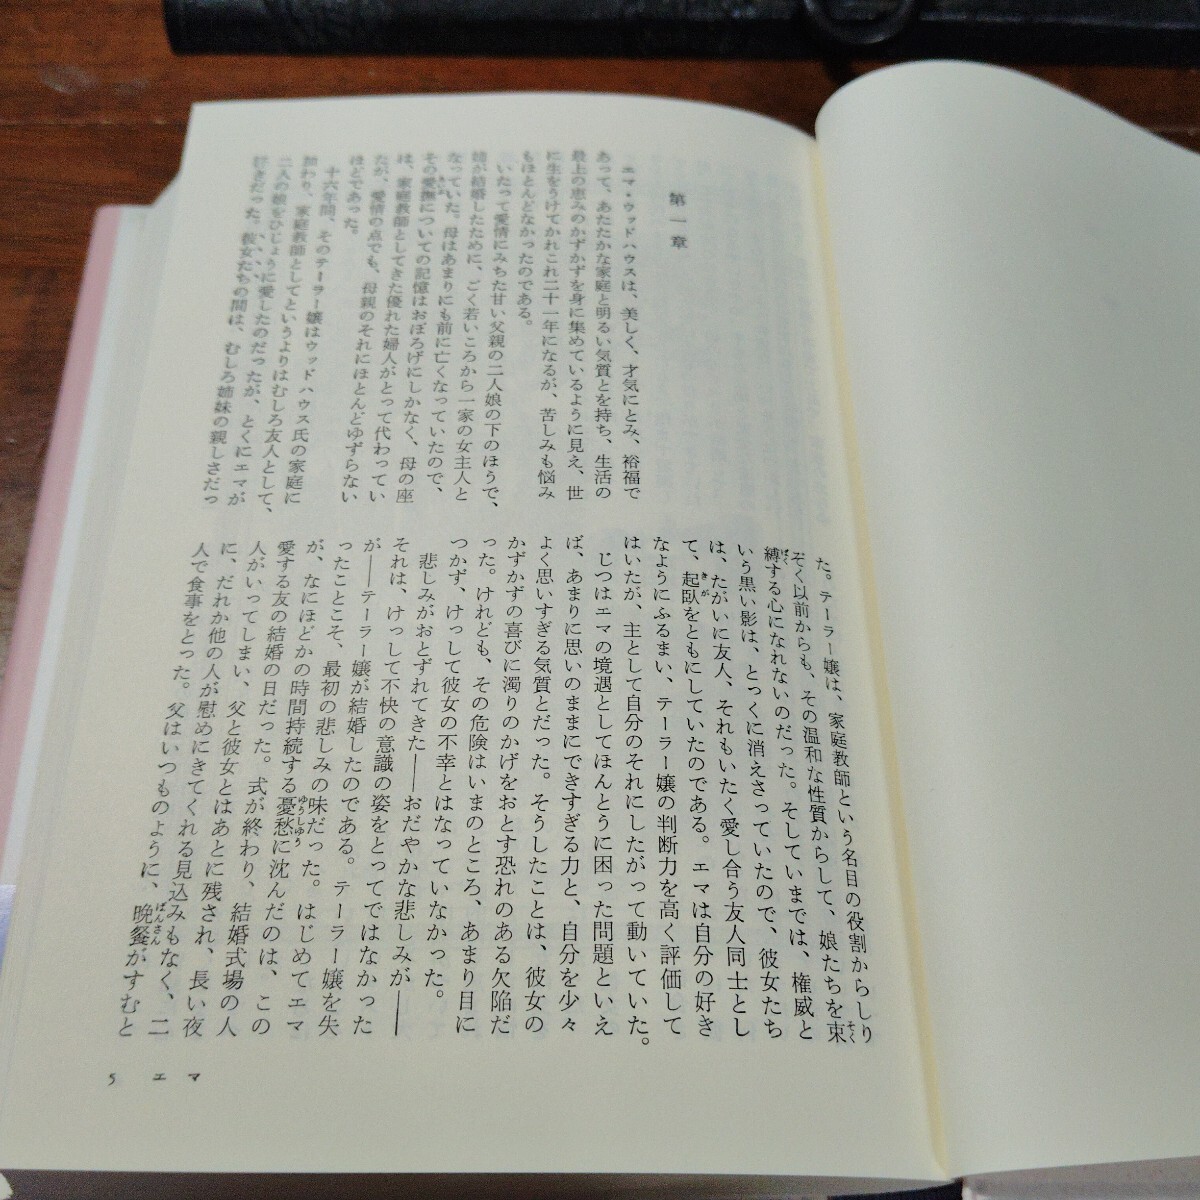 第一章
エマ・ウッドハウスは、美しく、才気にとみ、裕福で
あって、あたたかな家庭と明るい気質とを持ち、生活の
最上の恵みのかずかずを身に集めているように見え、世
に生をうけてかれこれ二十一年になるが、苦しみも悩み
もほとんどなかったのである。
いたって愛情にみちた甘い父親の二人娘の下のほうで、
姉が結婚したために、ごく若いころから一家の女主人と
なっていた。母はあまりにも前に亡くなっていたので、
その愛撫についての記憶はおぼろげにしかなく、母の座
は、家庭教師としてきた優れた婦人がとって代わってい
たが、愛情の点でも、母親のそれにほとんどゆずらない
ほどであった。
十六年間、そのテーラー嬢はウッドハウス氏の家庭に
加わり、家庭教師としてというよりはむしろ友人として、
二人の娘をひじょうに愛したのだったが、とくにエマが
好きだった。彼女たちの間は、むしろ姉妹の親しさだっ
た。テーラー嬢は、家庭教師という名目の役割からしり
ぞく以前からも、その温和な性質からして、娘たちを束
縛する心になれないのだった。そしていまでは、権威と
いう黒い影は、とっくに消えさっていたので、彼女たち
は、たがいに友人、それもいたく愛し合う友人同士とし
て、起臥をともにしていたのである。エマは自分の好き
なようにふるまい、テーラー嬢の判断力を高く評価して
はいたが、主として自分のそれにしたがって動いていた。
じつはエマの境遇としてほんとうに困った問題といえ
ば、あまりに思いのままにできすぎる力と、自分を少々
よく思いすぎる気質とだった。そうしたことは、彼女の
かずかずの喜びに濁りのかげをおとす恐れのある欠陥だ
った。けれども、その危険はいまのところ、あまり目に
つかず、けっして彼女の不幸とはなっていなかった。
悲しみがおとずれてきた――おだやかな悲しみが――
それは、けっして不快の意識の姿をとってではなかった
が――テーラー嬢が結婚したのである。テーラー嬢を失
ったことこそ、最初の悲しみの味だった。はじめてエマ
が、なにほどかの時間持続する憂愁に沈んだのは、この
愛する友の結婚の日だった。式が終わり、結婚式場の人
人がいってしまい、父と彼女とはあとに残され、長い夜
に、だれか他の人が慰めにきてくれる見込みもなく、二
人で食事をとった。父はいつものように、晩餐がすむと
5 エマ